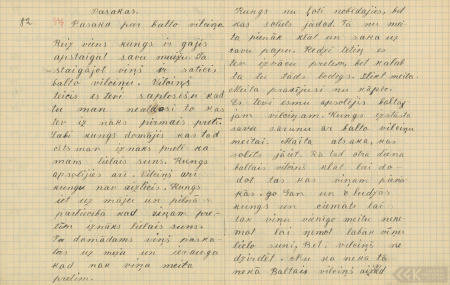 Pasakas.
12
Pasaka par balto vilciņu.
Reiz viens kungs ir gājis
apstaigāt savu muižu. Tā
staigājot viņš ir saticis
balto vilciņu. Vilciņš
teicis es tevi saplosīšu kad
tu man neatdosi to kas
tev iznāks pirmais pretī.
Labi kungs domājis kas tad
cits man iznāks pretī kā
mans lielais suns. Kungs
apsolījis arī. Vilciņš arī
kungu nav aizticis. Kungs
iet uz māju un pilnā
pārliecībā kad viņam pre-
tim iznāks lielais suns.
Tā domādams viņš paska-
tās uz māju un ierauga
kad nāk viņa meita
pretim.
Kungs nu ļoti nobēdājies, bet
kas solīts jādod. Tā nu mei-
ta pienāk klāt un saka uz
savu papu. Redzi tētiņ es
tev iznācu pretim, bet kālab
tu tu tāds bēdīgs. Iet meita.
Meita prasījusi nu kāpēc.
Es tevi esmu apsolījis baltaj
jam vilciņam. Kungs izstāsta
savu sarunu ar balto vilciņu
meitai. Meita atsaka, kas
solīts jāiet. Kā tad otrā dienā
baltais vilciņš klāt lai do-
dot tās kas viņam pienā-
kās. Go Gan un
kungs un ciemāti lai
tak viņu vienīgo meitu neņe-
mot lai ņemot labāk viņu
lielo suni, Bet vilciņš ne
dzirdēt. Nu kā nekā tā
nekā Baltais vilciņš aizved